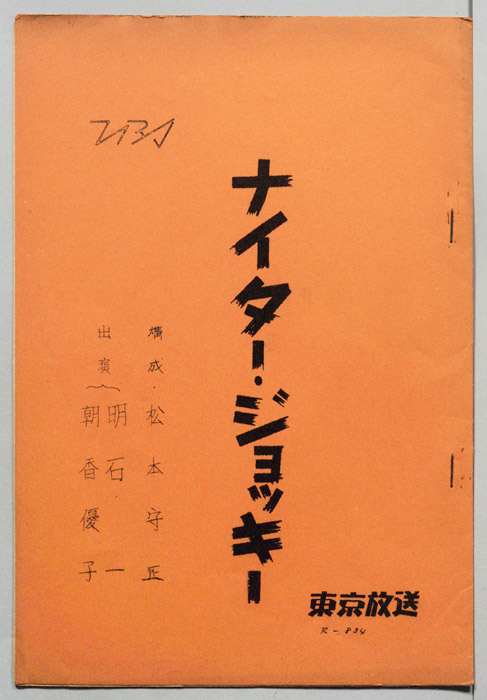 TBS
ナイター・ジョッキー
構成・松本守正
出演
明石一
朝香優子
東京放送
R-834